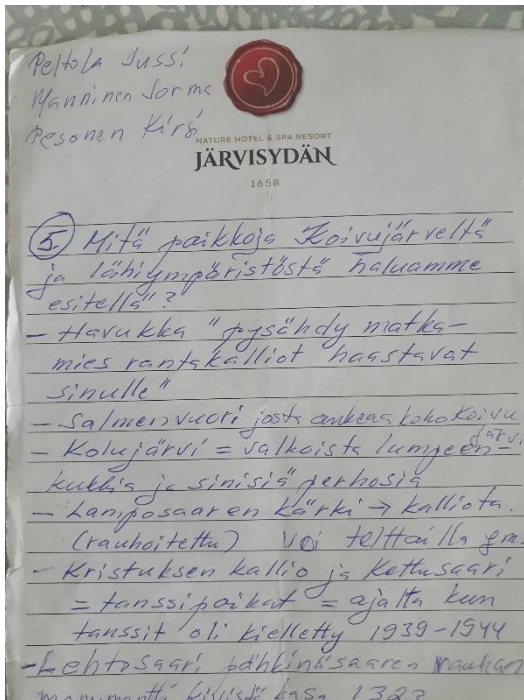 Peltola Jussi
Manninen Jorma
Pesonen Kirsi
NATURE HOTEL & SPA RESORT
JÄRVISYDÄN
1658
5. Mitä paikkoja Koivujärveltä
ja lähiympäristöstä haluamme
esitellä?
- Havukka "pysähdy matka-
mies rantakalliot haastavat
sinulle"
- Salmenvuori josta aukeaa koko Koivu
järvi
- Kolujärvi = valkoista lumpeen-
kukkia ja sinisiä perhosia
- Lamposaaren kärki → kalliota.
(rauhoitettu) voi telttailla ym.
- Kristuksen kallio ja Kettusaari
= tanssipaikat = ajalta kun
tanssit oli kielletty 1939-1944
- Lehtosaari pähkinäsaaren rauhan
monumentti kivistä kasa 1323